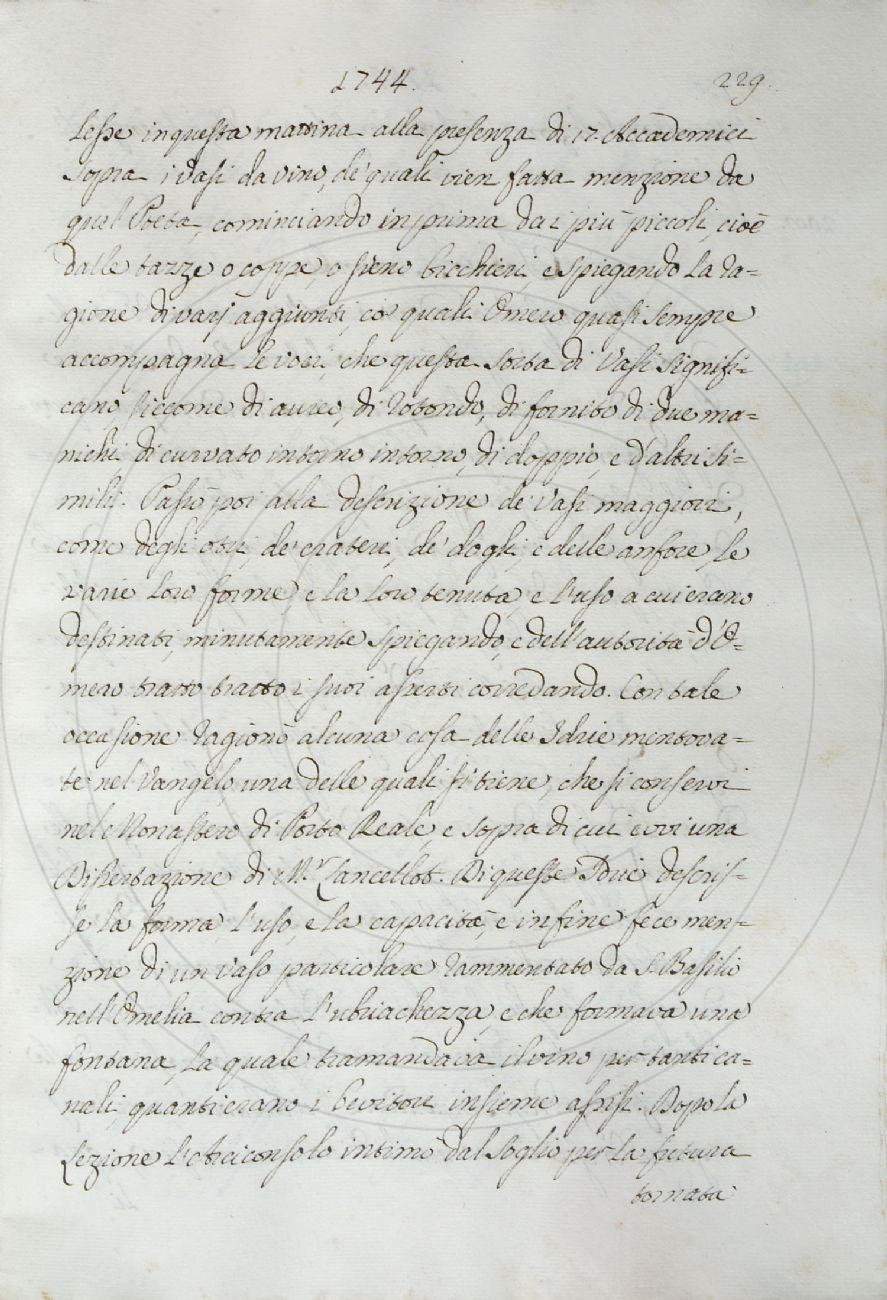 1744. 229
Lesse in questa mattina alla presenza di 17 Accademici
sopra i Vasi da vino, de' quali vien fatta menzione da
quel Poeta, cominciando in prima dai più piccoli, cioè
dalle tazze o coppe, o sieno bicchieri, e spiegando la ra=
gione di varj aggiunti, co' quali Omero quasi sempre
accompagna le voci, che questa sorta di Vasi signifi=
cano, siccome di aureo, di rotondo, di fornito di due ma=
nichi, di curvato intorno intorno, di doppio, e d'altri si=
mili. Passò poi alla descrizione de' Vasi maggiori,
come degli otri, de' crateri, de' dogli, e delle anfore, le
varie loro forme, e la loro tenuta, e l'uso a cui erano
destinati, minutamente spiegando, e dell'autorità d'O=
mero tratto tratto i suoi asserti corredando. Con tale
occasione ragionò alcuna cosa delle Idrie mentova=
te nel Vangelo, una delle quali si tiene, che si conservi
nel Monastero di Porto Reale, e sopra di cui evvi una
Dissertazione di M.r Lancellot. Di queste Idrie descris=
se la forma, l'uso, e la capacità, e infine fece men=
zione di un Vaso particolare rammentato da S. Basilio
nell'Omelia contra l'ubriachezza, e che formava una
fontana, la quale tramandava il vino per tanti ca=
nali, quanti erano i bevitori insieme assisi. Dopo la
Lezione l'Arciconsolo intimò dal Soglio per la futura
tornata